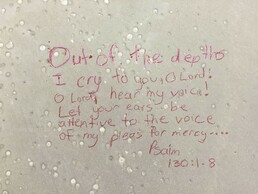 Out of the depths
I cry to you, O Lord!
O Lord, hear my voice!
Let your ears be
attentive to the voice
of my pleas for mercy....
Psalm
130:1-8